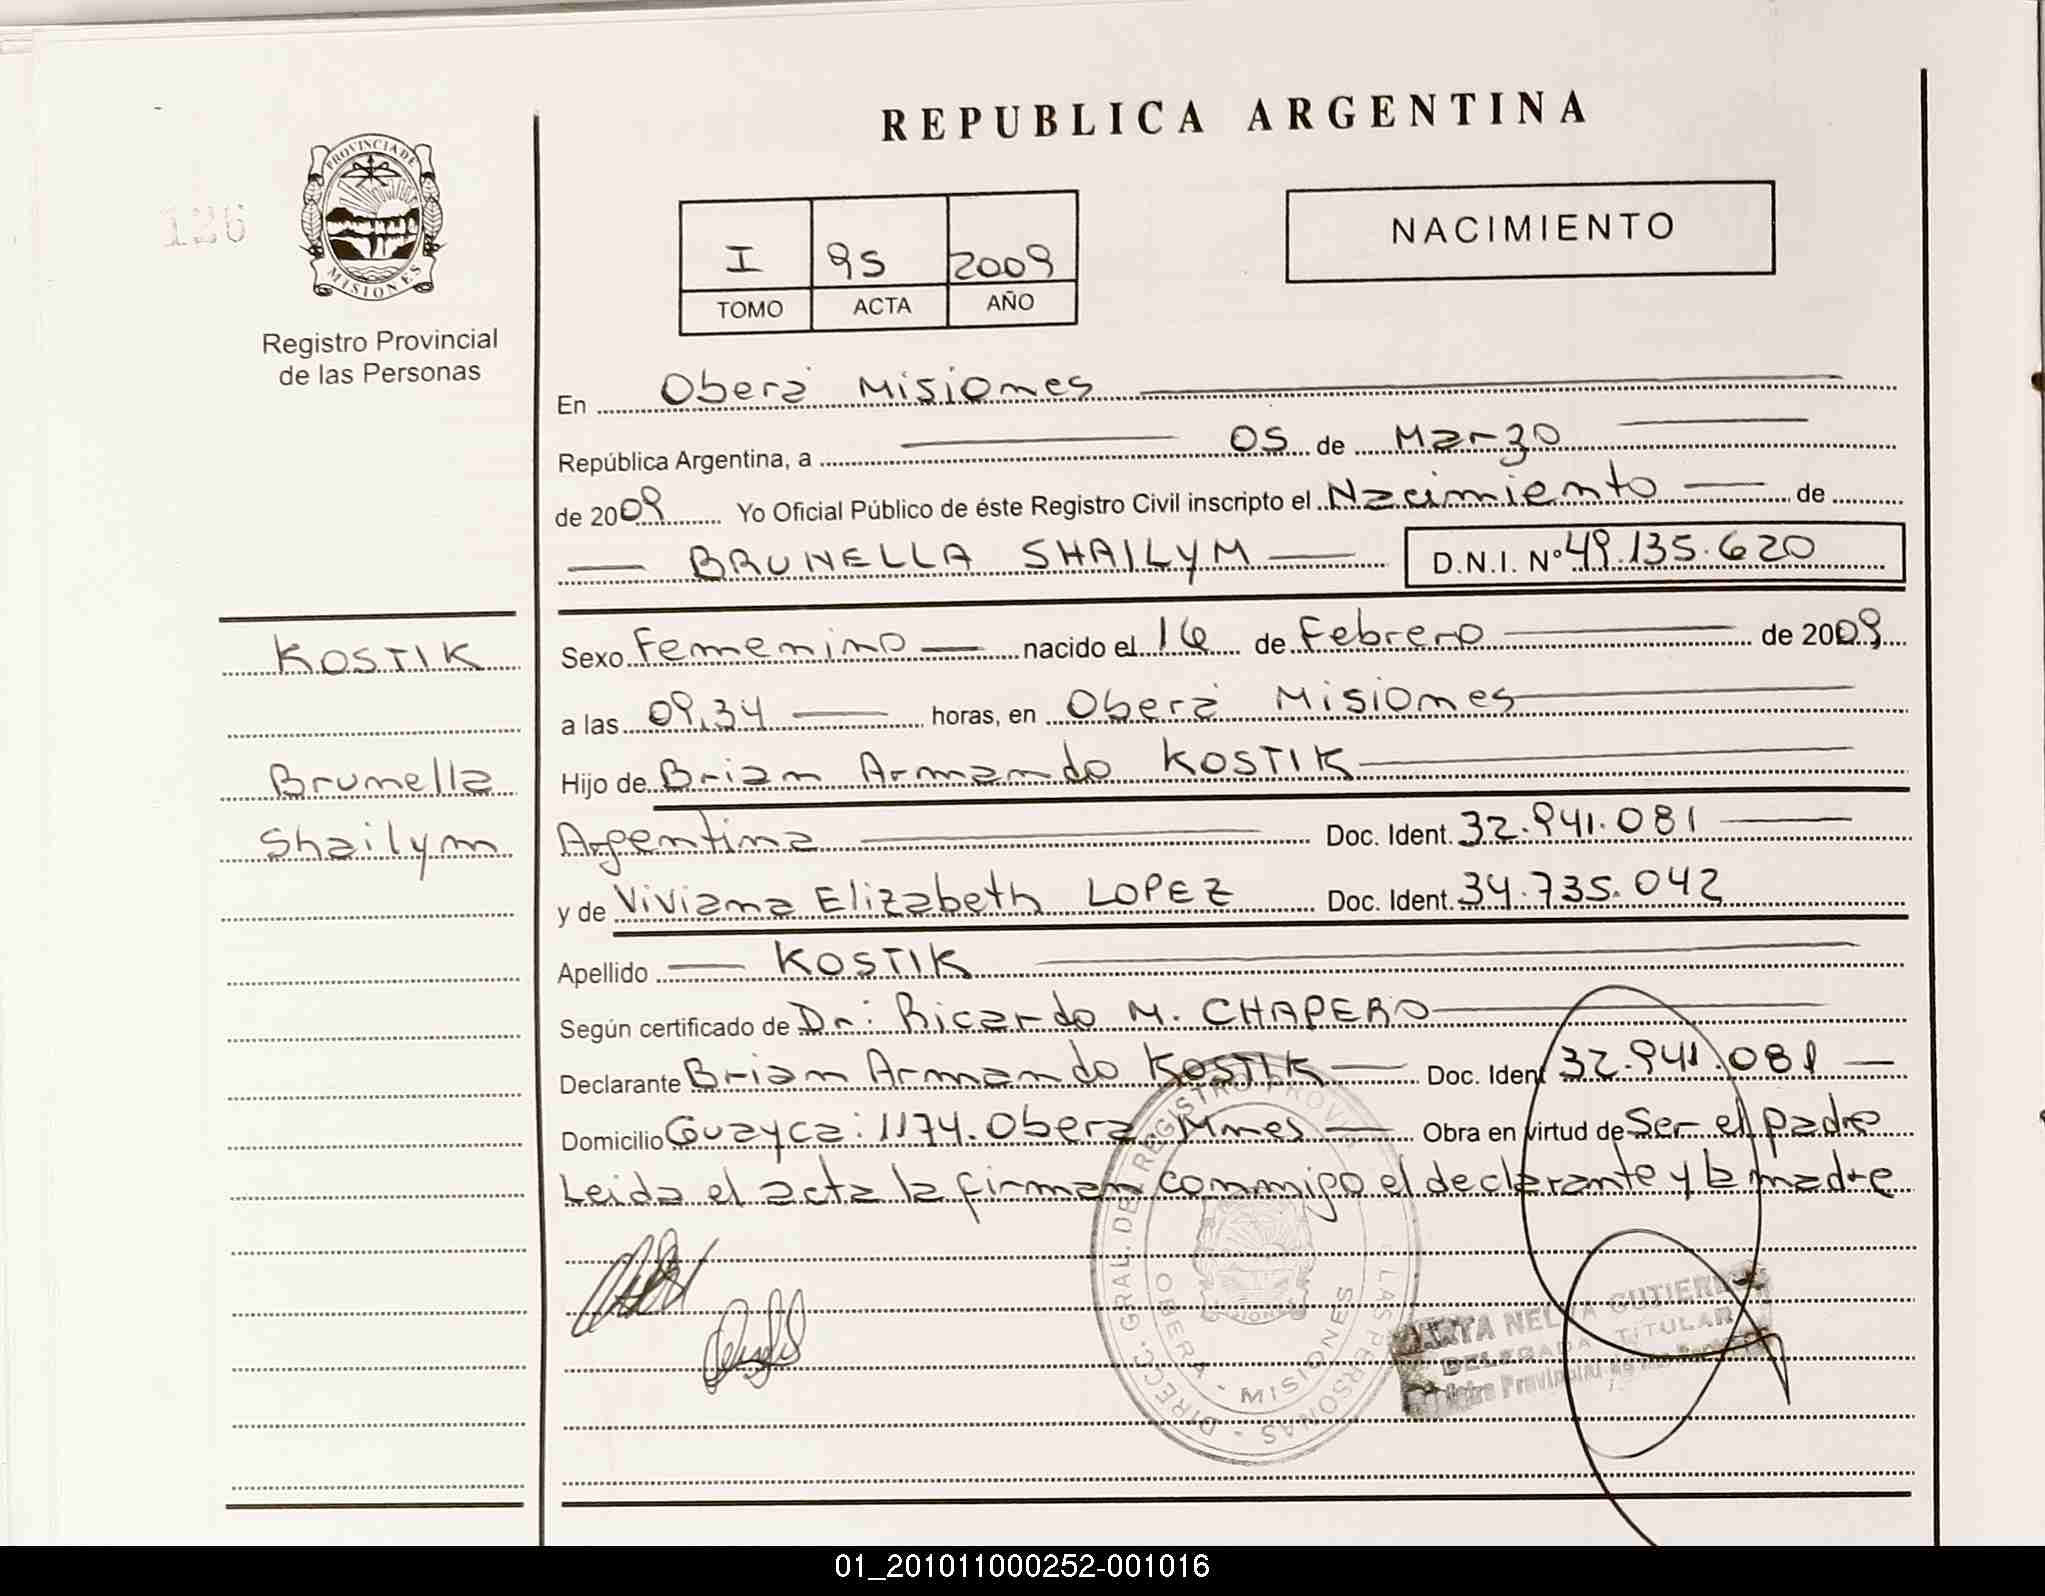 REPUBLICA ARGENTINA
126
PROVINCIA DE
MISIONES
Registro Provincial
de las Personas
I 95 2009
TOMO ACTA AÑO
NACIMIENTO
En Oberá Misiones
República Argentina, a 05 de Marzo
de 2009 Yo Oficial Público de éste Registro Civil inscripto el Nacimiento de
BRUNELLA SHAILYM D.N.I. Nº 49.135.620
KOSTIK
Brunella
Shailym
Sexo Femenino nacido el 16 de Febrero de 2009
a las 09,34 horas, en Oberá Misiones
Hijo de Brian Armando KOSTIK
Argentina Doc. Ident. 32.941.081
y de Viviana Elizabeth LOPEZ Doc. Ident. 34.735.042
Apellido KOSTIK
Según certificado de Dr: Ricardo M. CHAPERO
Declarante Brian Armando KOSTIK Doc. Ident 32.941.081
Domicilio Guayca: 1174. Obera Mnes Obra en virtud de Ser el padre
Leida el acta la firman conmigo el declarante y la madre
DIRECC. GRAL. DEL REGISTRO PROV. LAS PERSONAS
OBERA - MISIONES
NELVA GUTIERREZ
DELEGADA TITULAR
Provincial de las
01_201011000252-001016